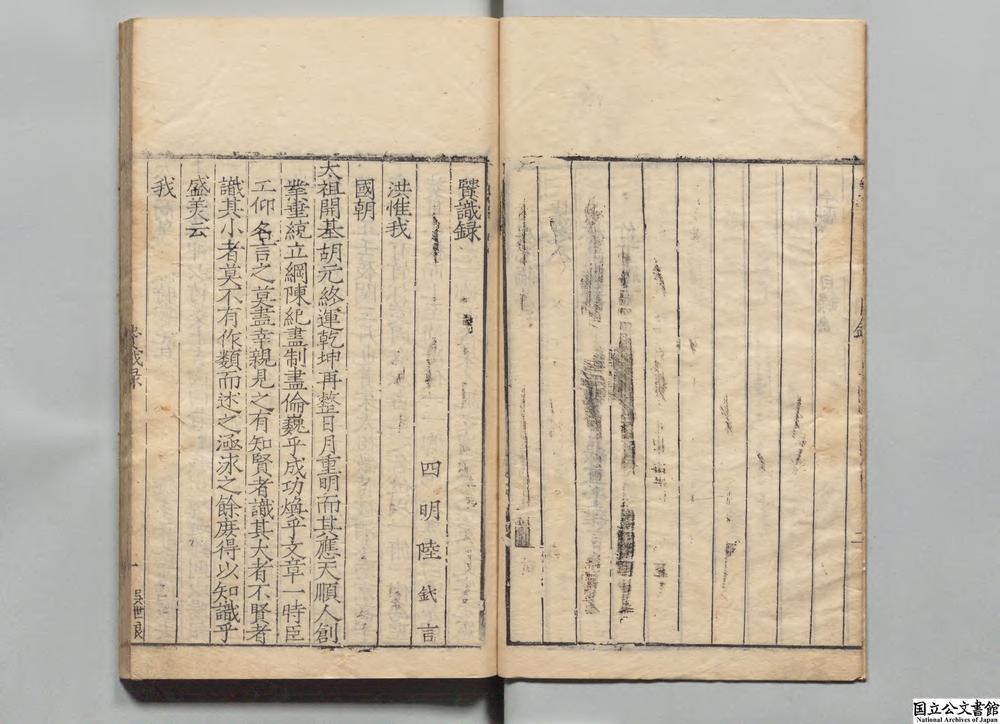 二
賢識録
四明陸釴言
洪惟我
國朝
太祖開基胡元終運乾坤再整日月重明而其應天順人創
業垂統立綱陳紀盡制盡倫巍乎成功煥乎文章一時臣
工仰名言之莫盡幸親見之有知賢者識其大者不賢者
識其小者莫不有作類而述之涵泳之餘庶得以知識乎
盛美云
我
賢識录
一
吳世良
国立公文書館
National Archives of Japan